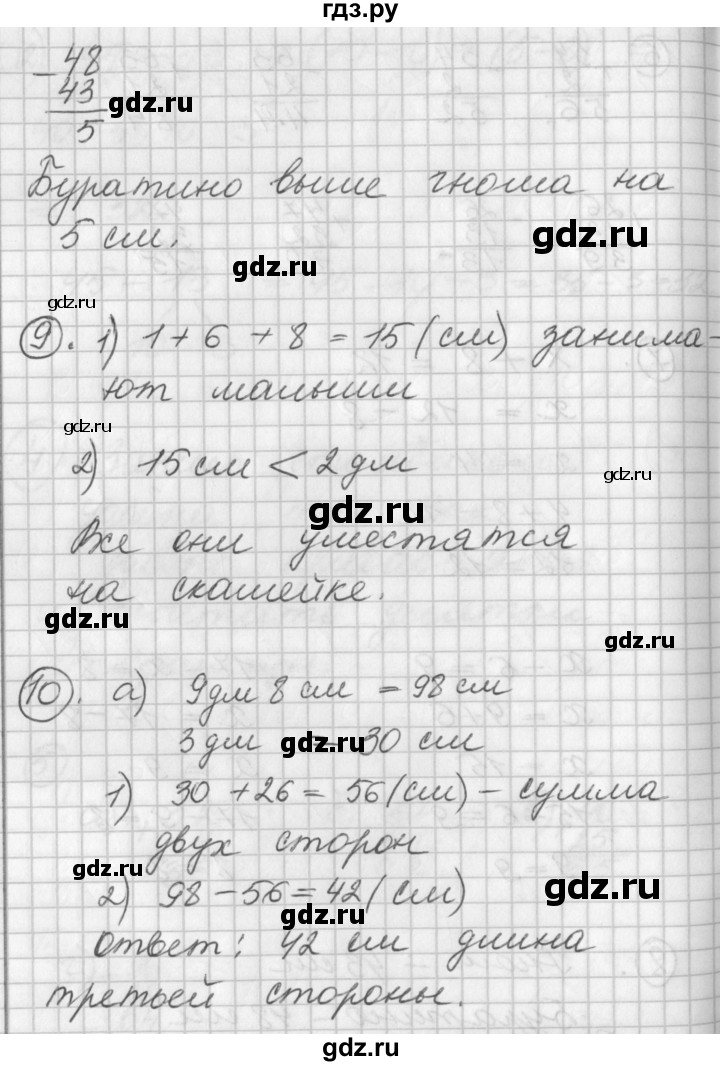 гдз.ру
− 48
43 gdz.ru
5
Буратино выше гнома на
5 см. gdz.ru
gdz.ru
gdz.ru
9. 1) 1 + 6 + 8 = 15 (см) занима-
ют малыши
gdz.ru
2) 15 см < 2 дм
gdz.ru
gdz.ru
Все они уместятся
на скамейке.
gdz.ru
gdz.ru
10. а) 9 дм 8 см = 98 см
3 дм gdz.ru = 30 см
1) 30 + 26 = 56 (см) – сумма
двух сторон
gdz.ru
2) 98 – 56 = 42 (см) gdz.ru
gdz.ru
Ответ: 42 см длина
третьей стороны.
gdz.ru